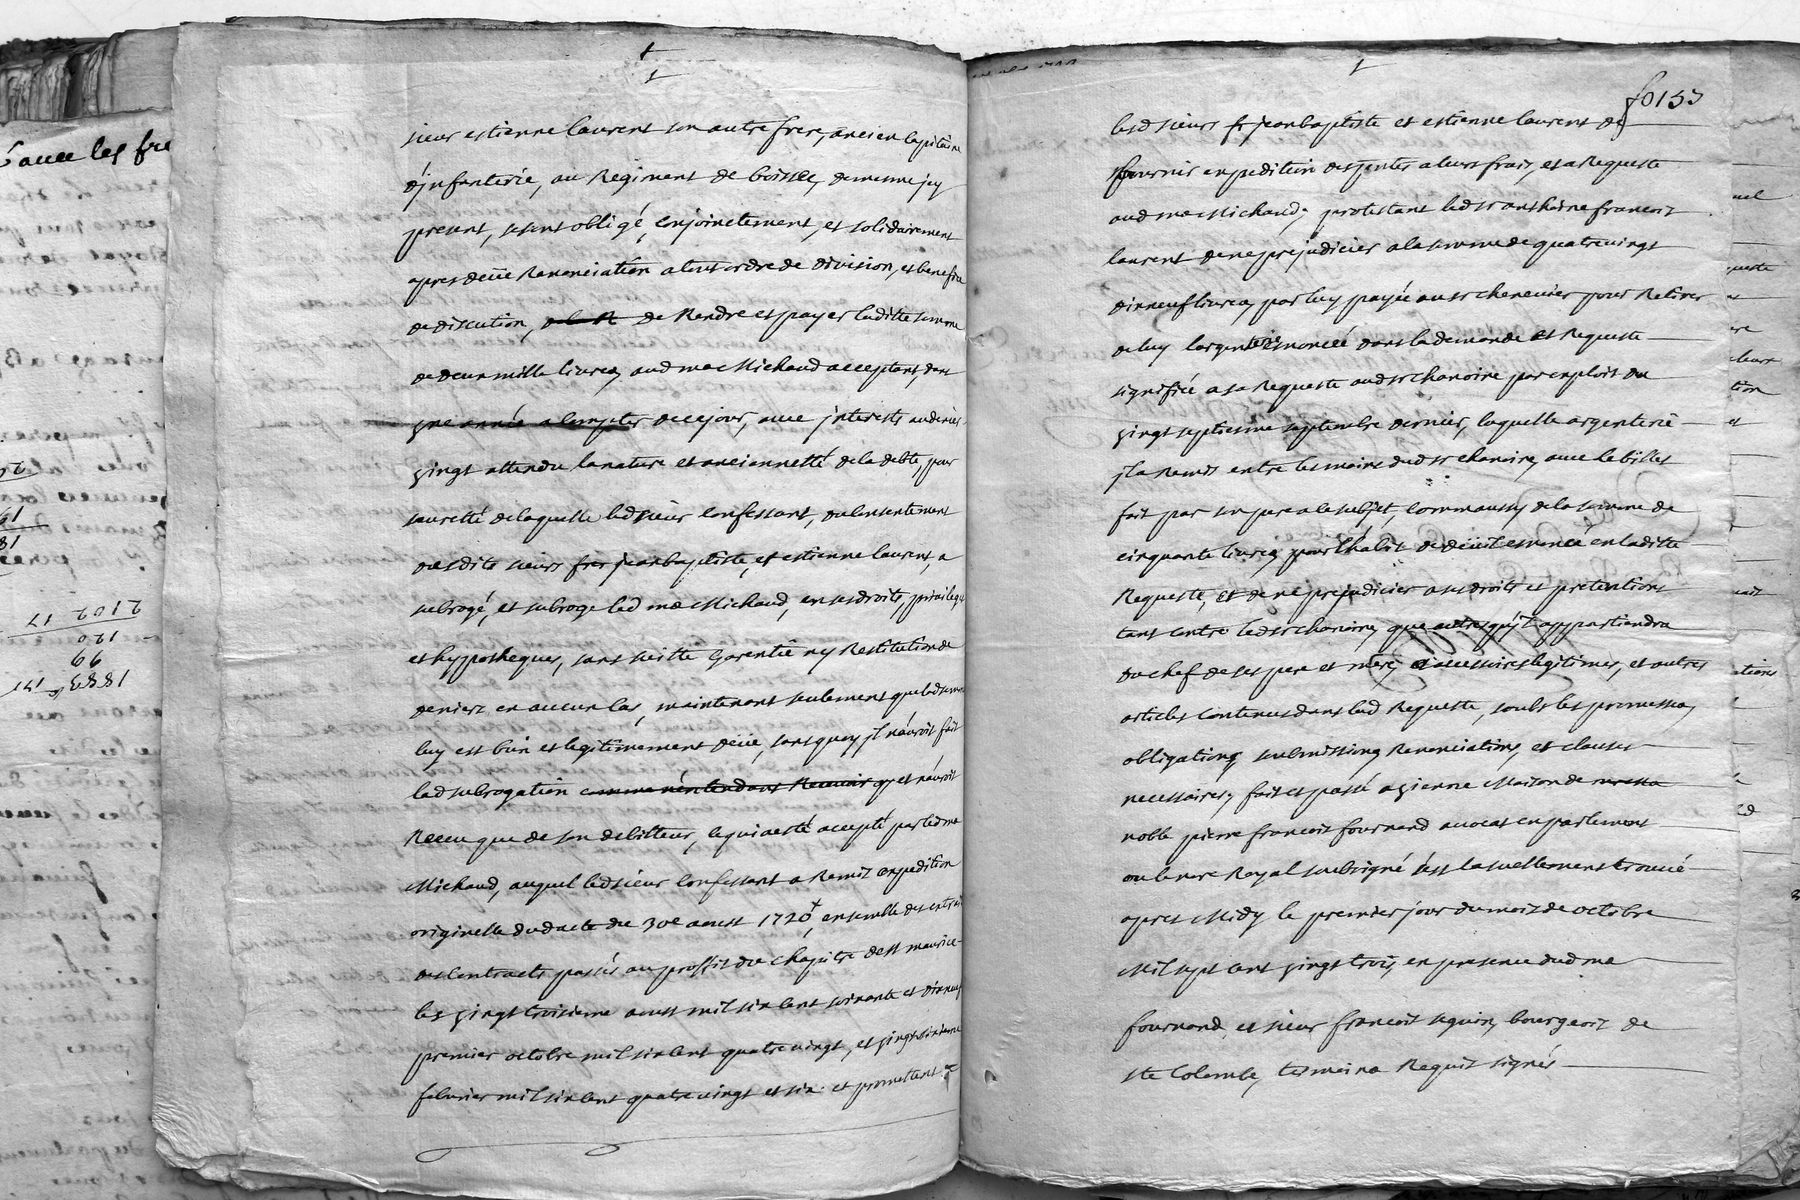 sieur estienne laurent son autre frere, ancien capitaine
d'jnfanterie, au Regiment de boissey, demesme jcy
present, sesont obligé, conjoinctement, et solidairement
apres deüe Renonciation atout ordre de division, et benefice
dediscution, de Rendre et payer laditte somme
dedeux mille livres, aud me Michaud acceptant, dans
une année acompter decejour, avec jnterests audenier
vingt attendu lanature et anciennetté deladebte, pour
seureté delaquelle ledsieur confessant, du consentement
desdits sieurs frer jeanbaptiste, et estienne laurent, a
subrogé, et subroge led me Michaud, ensesdroits, privileges
et hypotheques, sans suitte Garentie ny Restitution de
deniers en aucun cas, maintenant seulement que lad somme
luy est bien et legitimement deüe, sans quoy jl n'auroit fait
lad subrogation comme n'entendant Recevoir et n'auroit
Receu que de son debitteur, ce qui a esté accepté par led me
Michaud, auquel ledsieur confessant a Remis expedition
originelle dudacte du 30e aoust 1720, ensemble des extraits
des contracts passés au proffit du chapitre de st maurice
les vingt troisieme aoust mil six cent soixante et dixneuf
premier octobre mil six cent quatre vingt, et vingtsixieme
febvrier mil six cent quatre vingt et six et promettent
fo 153
lesd sieurs fr jeanbaptiste et estienne laurent de
fournir expedition desp̃ntes a leurs frais, et a Requeste
aud me Michaud; protestant led sr anthoine francois
laurent de ne prejudicier a la somme de quatre vingt
dixneuf livres, par luy payée au sr chenevier pour Retirer
de luy l'argenterie enoncée dans la demande et Requeste
signifiée a sa Requeste aud sr chanoine par exploit du
vingt septiesme septembre dernier, laquelle argenterie
jl a Remis entre les mains dud sr chanoine, avec le billet
fait par son pere a ce subjet, comm aussy de la somme de
cinquante livres pour l'habit de deüil enoncé en laditte
Requeste, et de ne prejudicier a ses droits et pretentions
tant contre led sr chanoine, que autres qu'jl appartiendra
du chef de ses pere et mere, et accessoires legitimes, et autres
articles contenus dans lad Requeste, soubs les promesses,
obligations, submissions, Renonciations, et clauses
necessaires, fait et passé a vienne Maison de
noble pierre francois fournand avocat en parlement
ou le nore Royal soubsigné s'est casuellement trouvé
apres Midy le premier jour du mois de octobre
Mil sept cent vingt trois, en presence dud me
fournand, et sieur francois seguin, bourgeois de
ste Colombe, tesmoins Requis signés